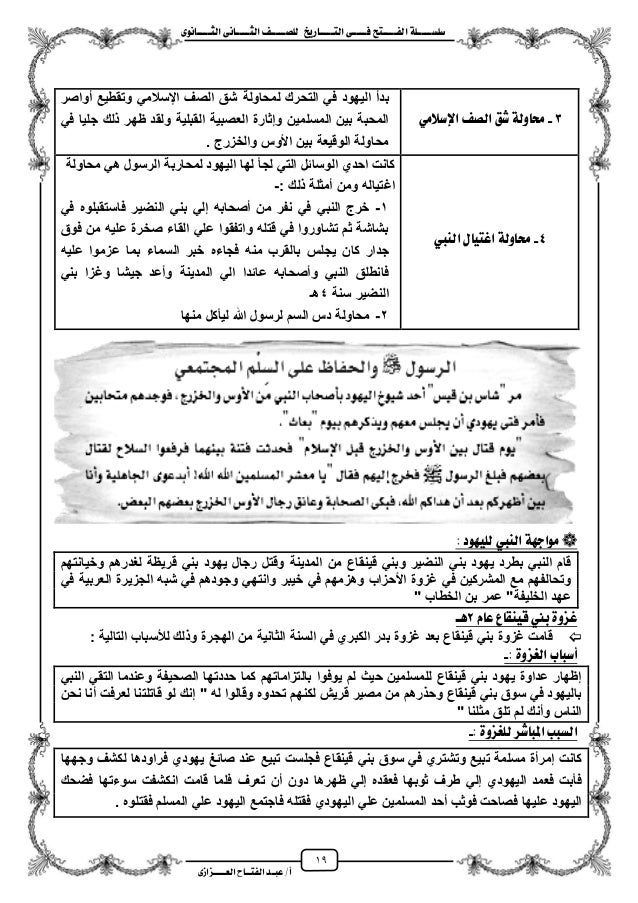 سلسلة الفتح فى التاريخ للصف الثانى الثانوى
٣ ـ محاولة شق الصف الإسلامي
بدأ اليهود في التحرك لمحاولة شق الصف الإسلامي وتقطيع أواصر
المحبة بين المسلمين وإثارة العصبية القبلية ولقد ظهر ذلك جليا في
محاولة الوقيعة بين الأوس والخزرج .
٤ ـ محاولة اغتيال النبي
كانت احدي الوسائل التي لجأ لها اليهود لمحاربة الرسول هي محاولة
اغتياله ومن أمثلة ذلك :-
١- خرج النبي في نفر من أصحابه إلي بني النضير فاستقبلوه في
بشاشة ثم تشاوروا في قتله واتفقوا علي القاء صخرة عليه من فوق
جدار كان يجلس بالقرب منه فجاءه خبر السماء بما عزموا عليه
فانطلق النبي وأصحابه عائدا الي المدينة وأعد جيشا وغزا بني
النضير سنة ٤ هـ
٢- محاولة دس السم لرسول الله ليأكل منها
الرسول ﷺ والحفاظ على السلم المجتمعي
مر "شاس بن قيس" أحد شيوخ اليهود بأصحاب النبي من الأوس والخزرج، فوجدهم متحابين
فأمر فتى يهودي أن يجلس معهم ويذكرهم بيوم "بعاث".
"يوم قتال بين الأوس والخزرج قبل الإسلام" فحدثت فتنة بينهما فرفعوا السلاح لقتال
بعضهم فبلغ الرسول ﷺ فخرج إليهم فقال "يا معشر المسلمين الله الله! أبدعوى الجاهلية وأنا
بين أظهركم بعد أن هداكم الله، فبكى الصحابة وعانق رجال الأوس الخزرج بعضهم البعض.
مواجهة النبي لليهود :
قام النبي بطرد يهود بني النضير وبني قينقاع من المدينة وقتل رجال يهود بني قريظة لغدرهم وخيانتهم
وتحالفهم مع المشركين في غزوة الأحزاب وهزمهم في خيبر وانتهي وجودهم في شبه الجزيرة العربية في
عهد الخليفة" عمر بن الخطاب "
غزوة بني قينقاع عام ٢هـ
⇦ قامت غزوة بني قينقاع بعد غزوة بدر الكبري في السنة الثانية من الهجرة وذلك للأسباب التالية :
أسباب الغزوة :ـ
إظهار عداوة يهود بني قينقاع للمسلمين حيث لم يوفوا بالتزاماتهم كما حددتها الصحيفة وعندما التقي النبي
باليهود في سوق بني قينقاع وحذرهم من مصير قريش لكنهم تحدوه وقالوا له " إنك لو قاتلتنا لعرفت أنا نحن
الناس وأنك لم تلق مثلنا "
السبب المباشر للغزوة :ـ
كانت إمرأة مسلمة تبيع وتشتري في سوق بني قينقاع فجلست تبيع عند صائغ يهودي فراودها لكشف وجهها
فأبت فعمد اليهودي إلي طرف ثوبها فعقده إلي ظهرها دون أن تعرف فلما قامت انكشفت سوءتها فضحك
اليهود عليها فصاحت فوثب أحد المسلمين علي اليهودي فقتله فاجتمع اليهود علي المسلم فقتلوه .
١٩
أ/ عبد الفتاح العزازى